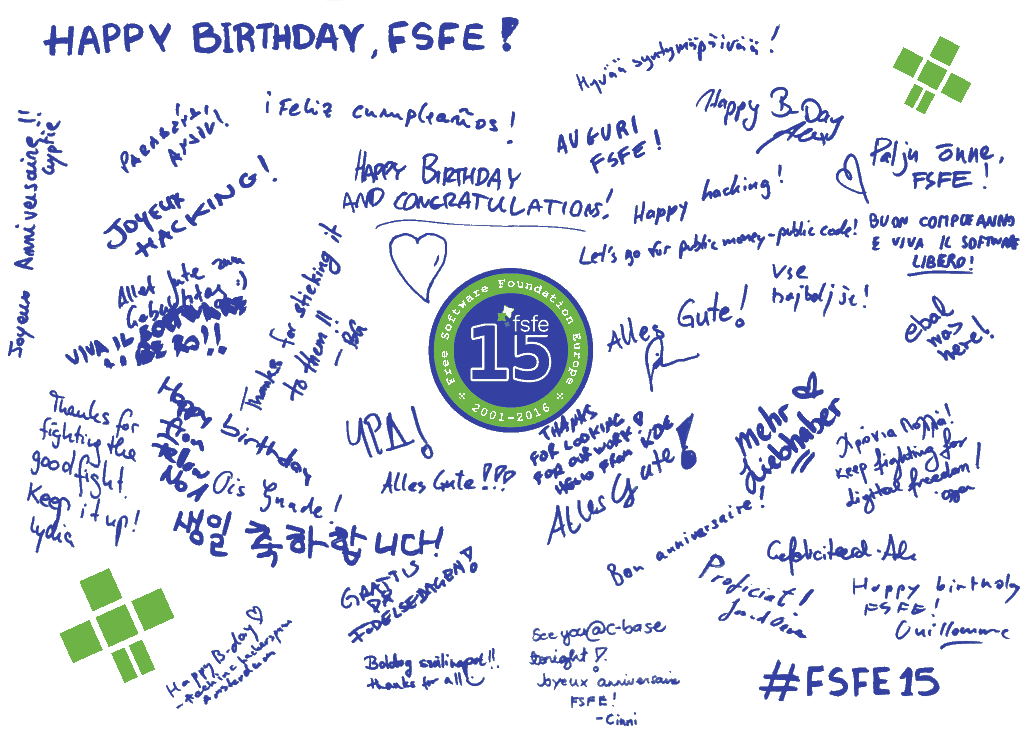 HAPPY BIRTHDAY, FSFE!
Hyvää syntymäpäivää!
¡Feliz cumpleaños!
Happy B-Day
Alex
PARABÉNS,
AUGURI
FSFE!
Palju õnne,
FSFE!
Joyeux Anniversaire!!
JOYEUX
HACKING!
HAPPY BIRTHDAY
AND CONGRATULATIONS!
Happy hacking!
Let's go for public money-public code!
BUON COMPLEANNO
E VIVA IL SOFTWARE
LIBERO!
Vse
najboljše!
Alles Gute zum
Geburtstag :)
VIVA IL SOFTWARE
LIBERO!!
Thanks for sticking it
to them!!
Free Software Foundation Europe
fsfe
15
2001-2016
Alles Gute!
ebal
was
here!
Thanks for
fighting the
good fight.
Keep it up!
Lydia
Happy birthday
from
fellow
No1
Ois Guade!
УРА!
Alles Gute!!!
THANKS
FOR LOOKING
FOR OUR WORK!
HELLO FROM KDE
ALLES Gute!
mehr
Liebhaber
Χρόνια Πολλά!
keep fighting for
digital freedom!
생일 축하합니다!
Bon anniversaire!
Gefeliciteerd
Proficiat!
GRATTIS
PÅ
FÖDELSEDAGEN!
Happy birthday
FSFE!
Guillaume
Happy B-day
Amsterdam
Boldog szülinapot!!
thanks for all
See you@c-base
tonight!
Joyeux anniversaire
FSFE!
-Cinni
#FSFE15